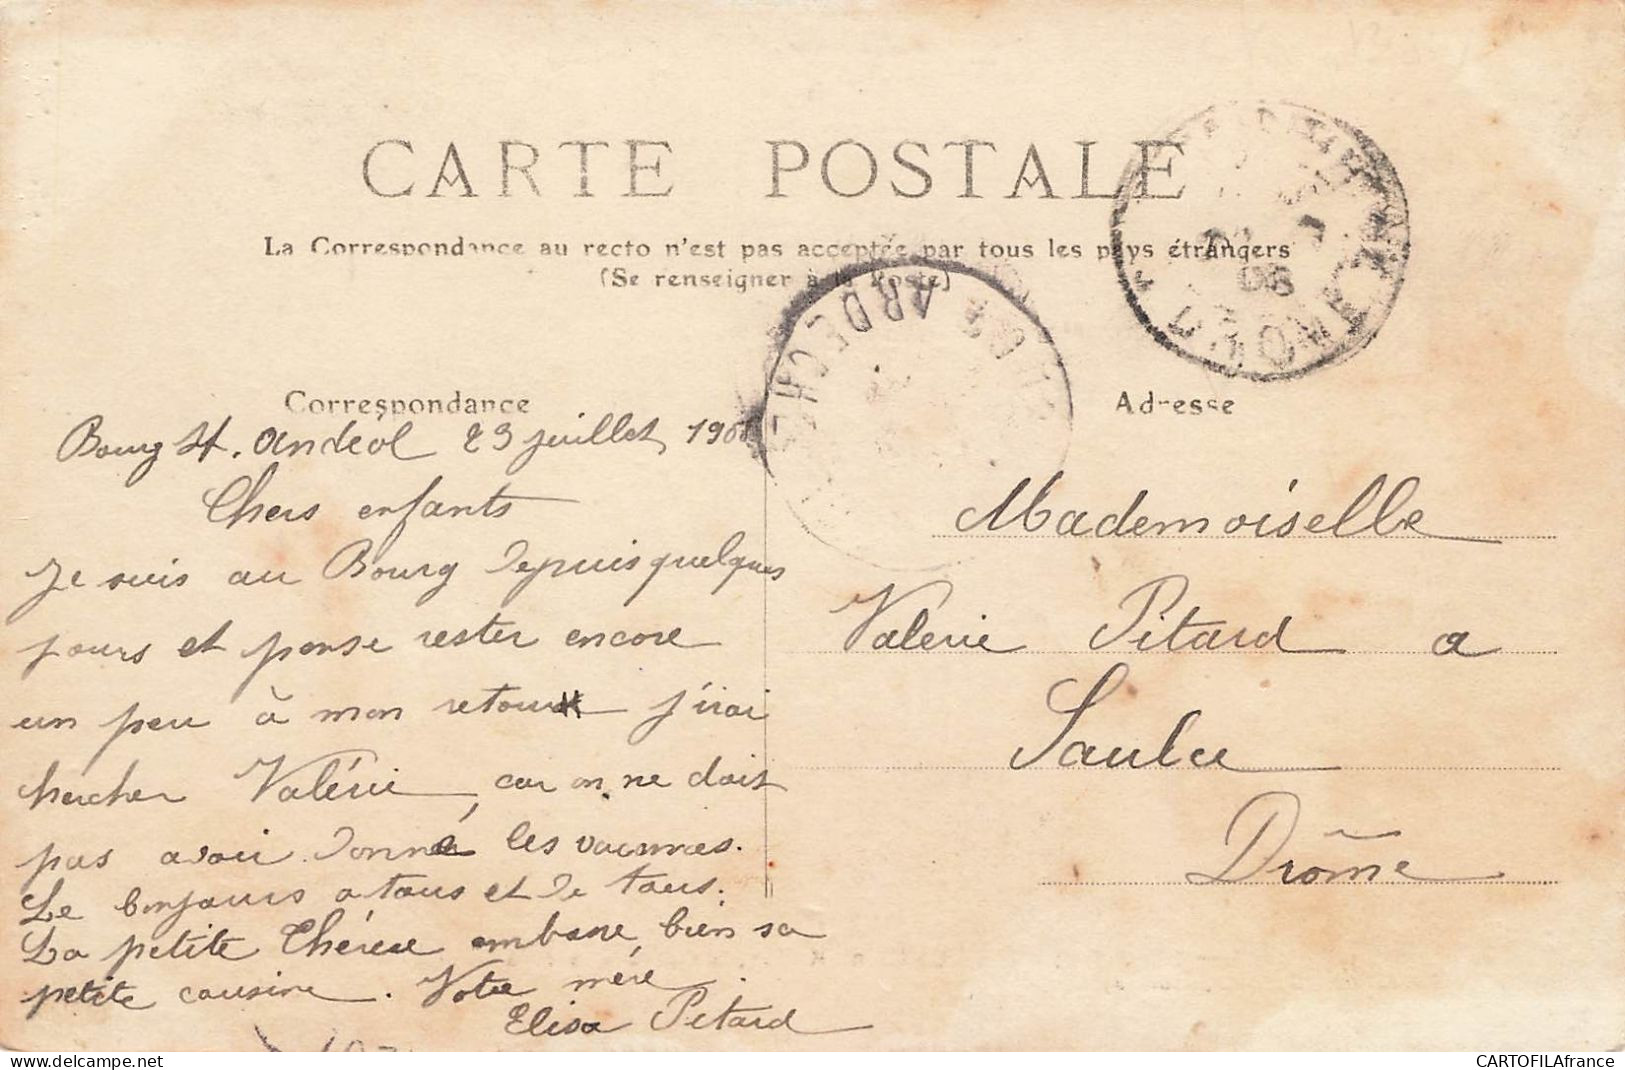 CARTE POSTALE
La Correspondance au recto n'est pas acceptée par tous les pays étrangers
(Se renseigner à la Poste)
ARDECHE
DROME
08
Correspondance
Bourg St. Andéol 23 juillet 190
Chers enfants
Je suis au Bourg depuis quelques
jours et pense rester encore
un peu à mon retour j'irai
chercher Valérie, car on ne doit
pas avoir donné les vacances.
Le bonjours a tous et de tous.
La petite Thérèse embrasse bien sa
petite cousine. Votre mère
Elisa Pitard
Adresse
Mademoiselle
Valerie Pitard a
Saulce
Drôme
CARTOFILAfrance